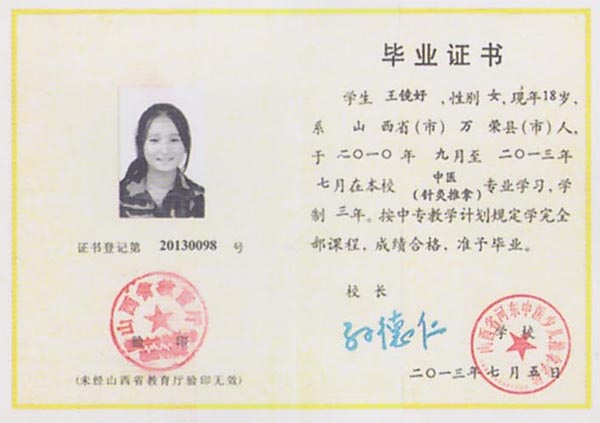 证书登记第 20130098 号
山西省教育厅
验印
(未经山西省教育厅验印无效)
毕业证书
学生 王镜好 ,性别 女, 现年18岁,
系 山 西省(市) 万 荣县(市)人,
于 二〇一〇年 九月至 二〇一三年
七月在本校 中医(针灸推拿) 专业学习,学
制 三年。按中专教学计划规定学完全
部课程,成绩合格,准予毕业。
校 长
孙德仁
学 校
二〇一三年 七 月 五 日